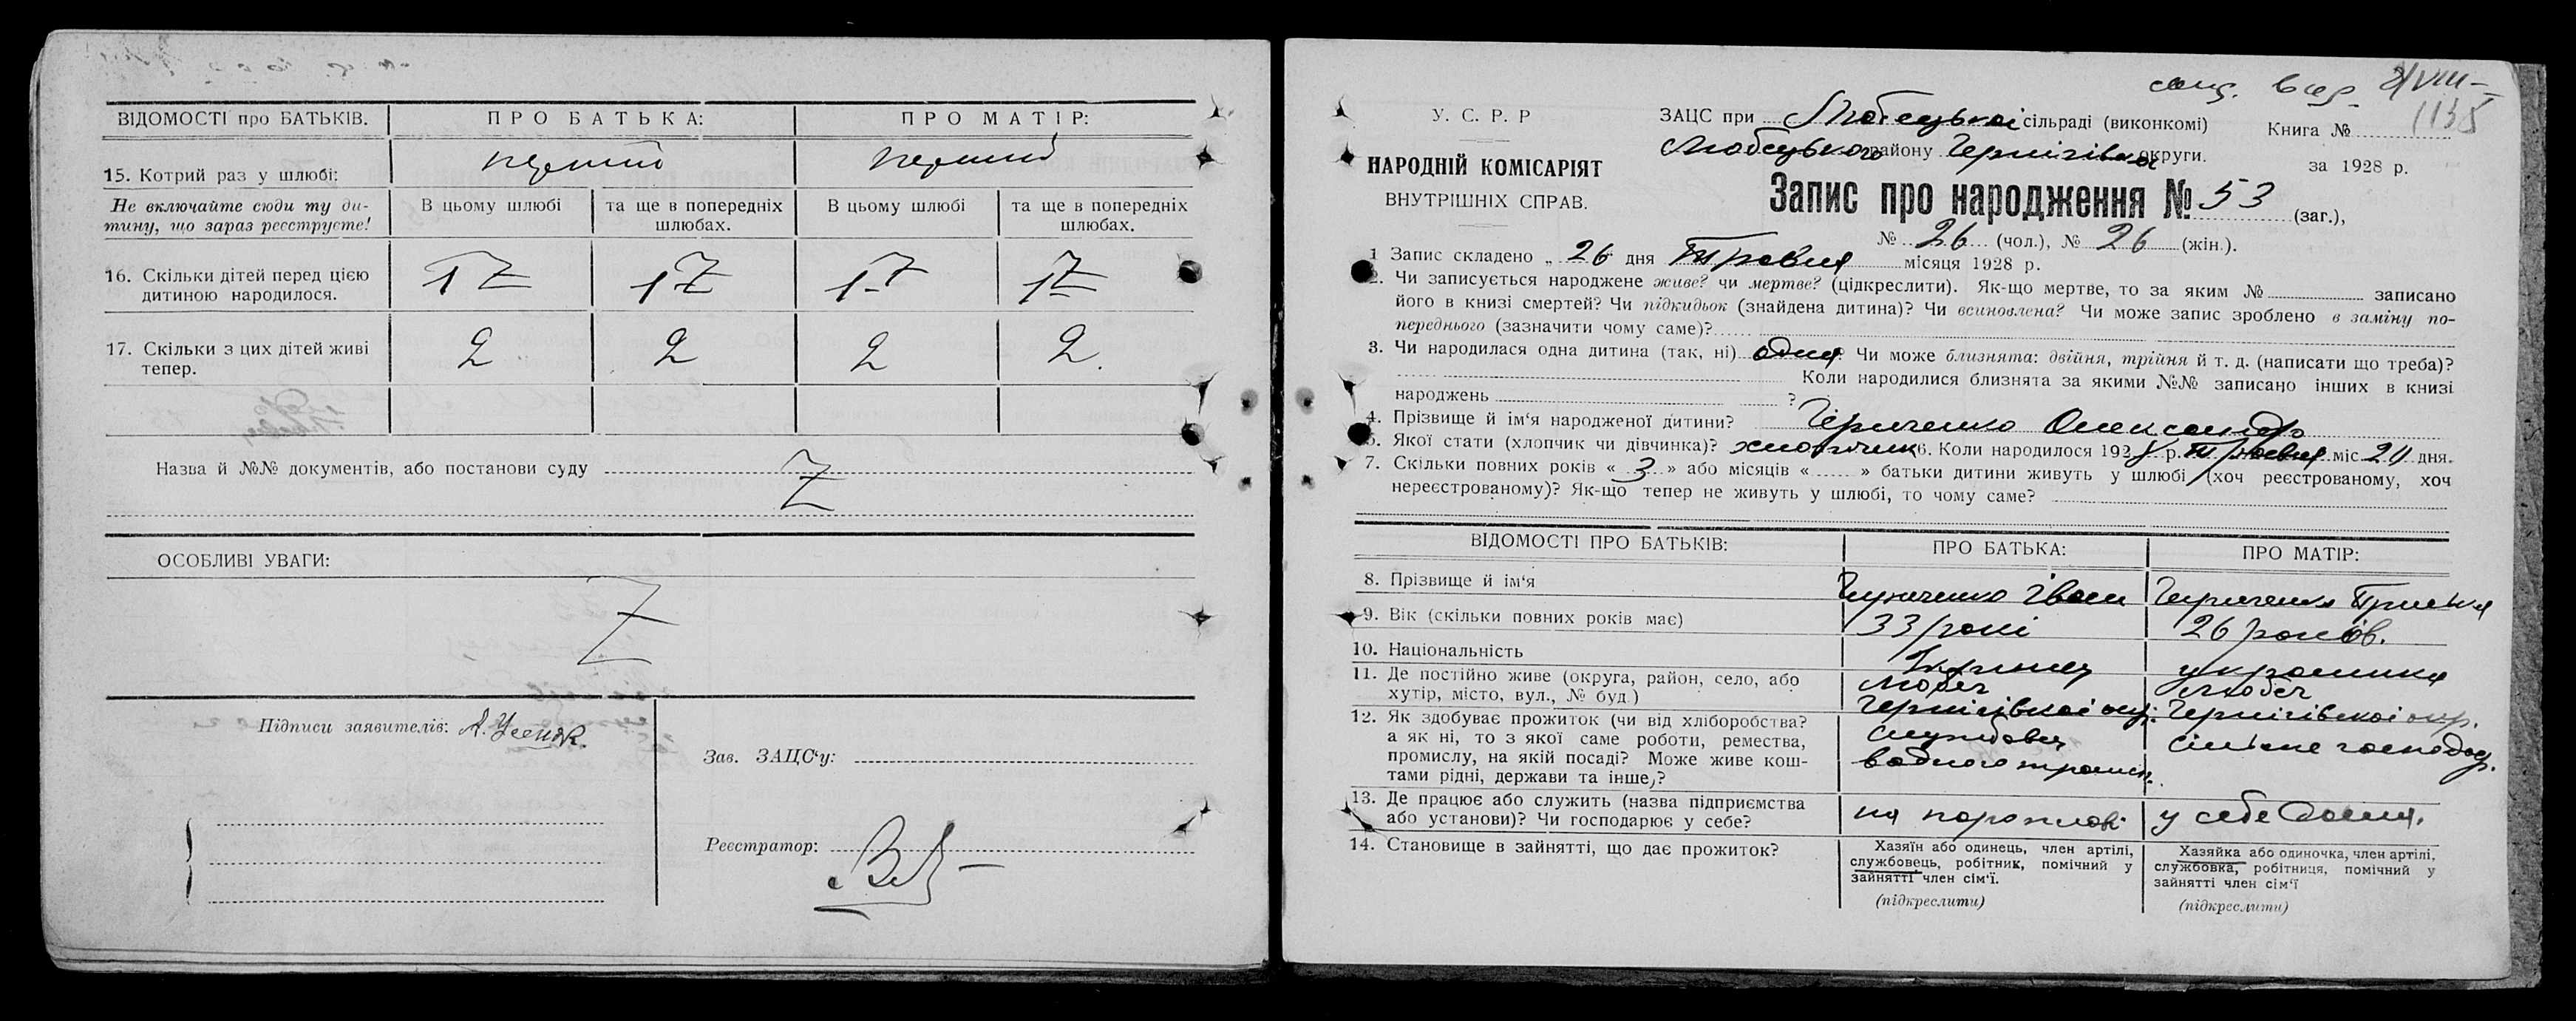 ВІДОМОСТІ про БАТЬКІВ.
ПРО БАТЬКА:
ПРО МАТІР:
15. Котрий раз у шлюбі:
перший
перший
Не включайте сюди ту ди-
тину, що зараз реєструєте!
В цьому шлюбі
та ще в попередніх
шлюбах.
В цьому шлюбі
та ще в попередніх
шлюбах.
16. Скільки дітей перед цією
дитиною народилося.
17. Скільки з цих дітей живі
тепер.
2
2
2
2.
Назва й №№ документів, або постанови суду
Z
ОСОБЛИВІ УВАГИ:
Z
Підписи заявителів:
Зав. ЗАЦС'у:
Реєстратор:
У. С. Р. Р
НАРОДНІЙ КОМІСАРІЯТ
ВНУТРІШНІХ СПРАВ.
ЗАЦС при Любецькоі сільраді (виконкомі)
Книга №
Любецького району Чернігівськоі округи.
за 1928 р.
Запис про народження № 53 (заг.),
№ 26 (чол.), № 26 (жін.).
1 Запис складено „ 26 дня Травня місяця 1928 р.
2. Чи записується народжене живе? чи мертве? (цідкреслити). Як-що мертве, то за яким № записано
його в книзі смертей? Чи підкидьок (знайдена дитина)? Чи всиновлена? Чи може запис зроблено в заміну по-
переднього (зазначити чому саме)?
3. Чи народилася одна дитина (так, ні) одна? Чи може близнята: двійня, трійня й т. д. (написати що треба)?
Коли народилися близнята за якими №№ записано інших в книзі
народжень ?
4. Прізвище й ім'я народженої дитини? Олександр
5. Якої стати (хлопчик чи дівчинка)? хлопчик 6. Коли народилося 1928 р. Травня міс дня.
7. Скільки повних років « 3 » або місяців « » батьки дитини живуть у шлюбі (хоч реєстрованому, хоч
нереєстрованому)? Як-що тепер не живуть у шлюбі, то чому саме?
ВІДОМОСТІ ПРО БАТЬКІВ:
ПРО БАТЬКА:
ПРО МАТІР:
8. Прізвище й ім'я
Іван
9. Вік (скільки повних років має)
33 роки
26 років.
10. Національність
українка
11. Де постійно живе (округа, район, село, або
хутір, місто, вул., № буд.)
Любеч
Чернігівськоі окр.
Любеч
Чернігівськоі окр.
12. Як здобуває прожиток (чи від хліборобства?
а як ні, то з якої саме роботи, ремества,
промислу, на якій посаді? Може живе кош-
тами рідні, держави та інше,?
службовець
водного трансп.
сільське господар.
13. Де працює або служить (назва підприємства
або установи)? Чи господарює у себе?
на пароплаві
у себе дома.
14. Становище в зайнятті, що дає прожиток?
Хазяїн або одинець, член артілі,
службовець, робітник, помічний у
зайнятті член сім'ї.
(підкреслити)
Хазяйка або одиночка, член артілі,
службовка, робітниця, помічний у
зайнятті член сім'ї
(підкреслити)